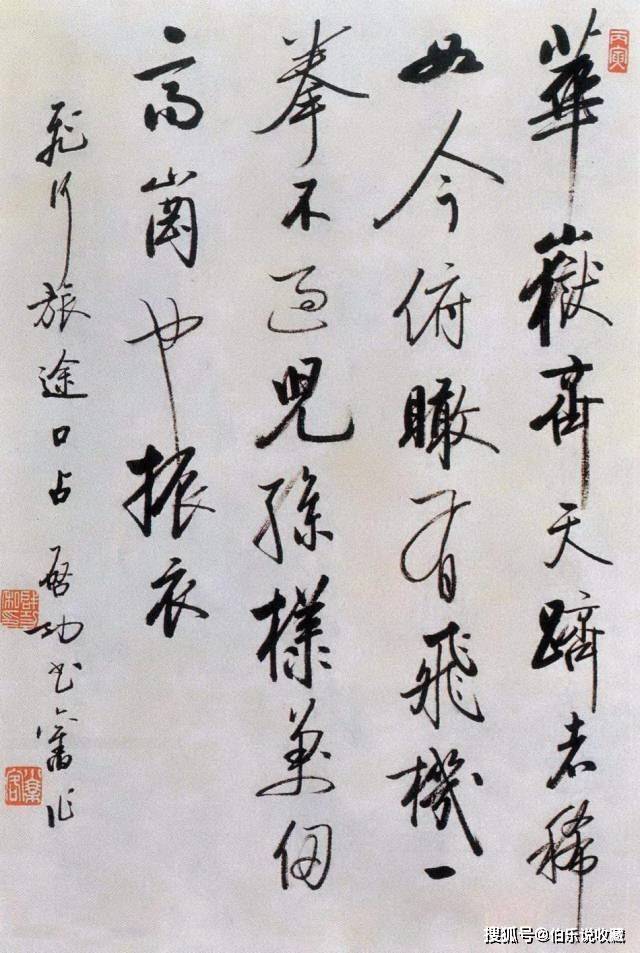 丙寅
華嶽齊天躋者稀
如今俯瞰有飛機一
拳不過兒孫樣萬仞
高崗也振衣
飛行旅途口占 啟功書舊作
搜狐号@伯乐说收藏